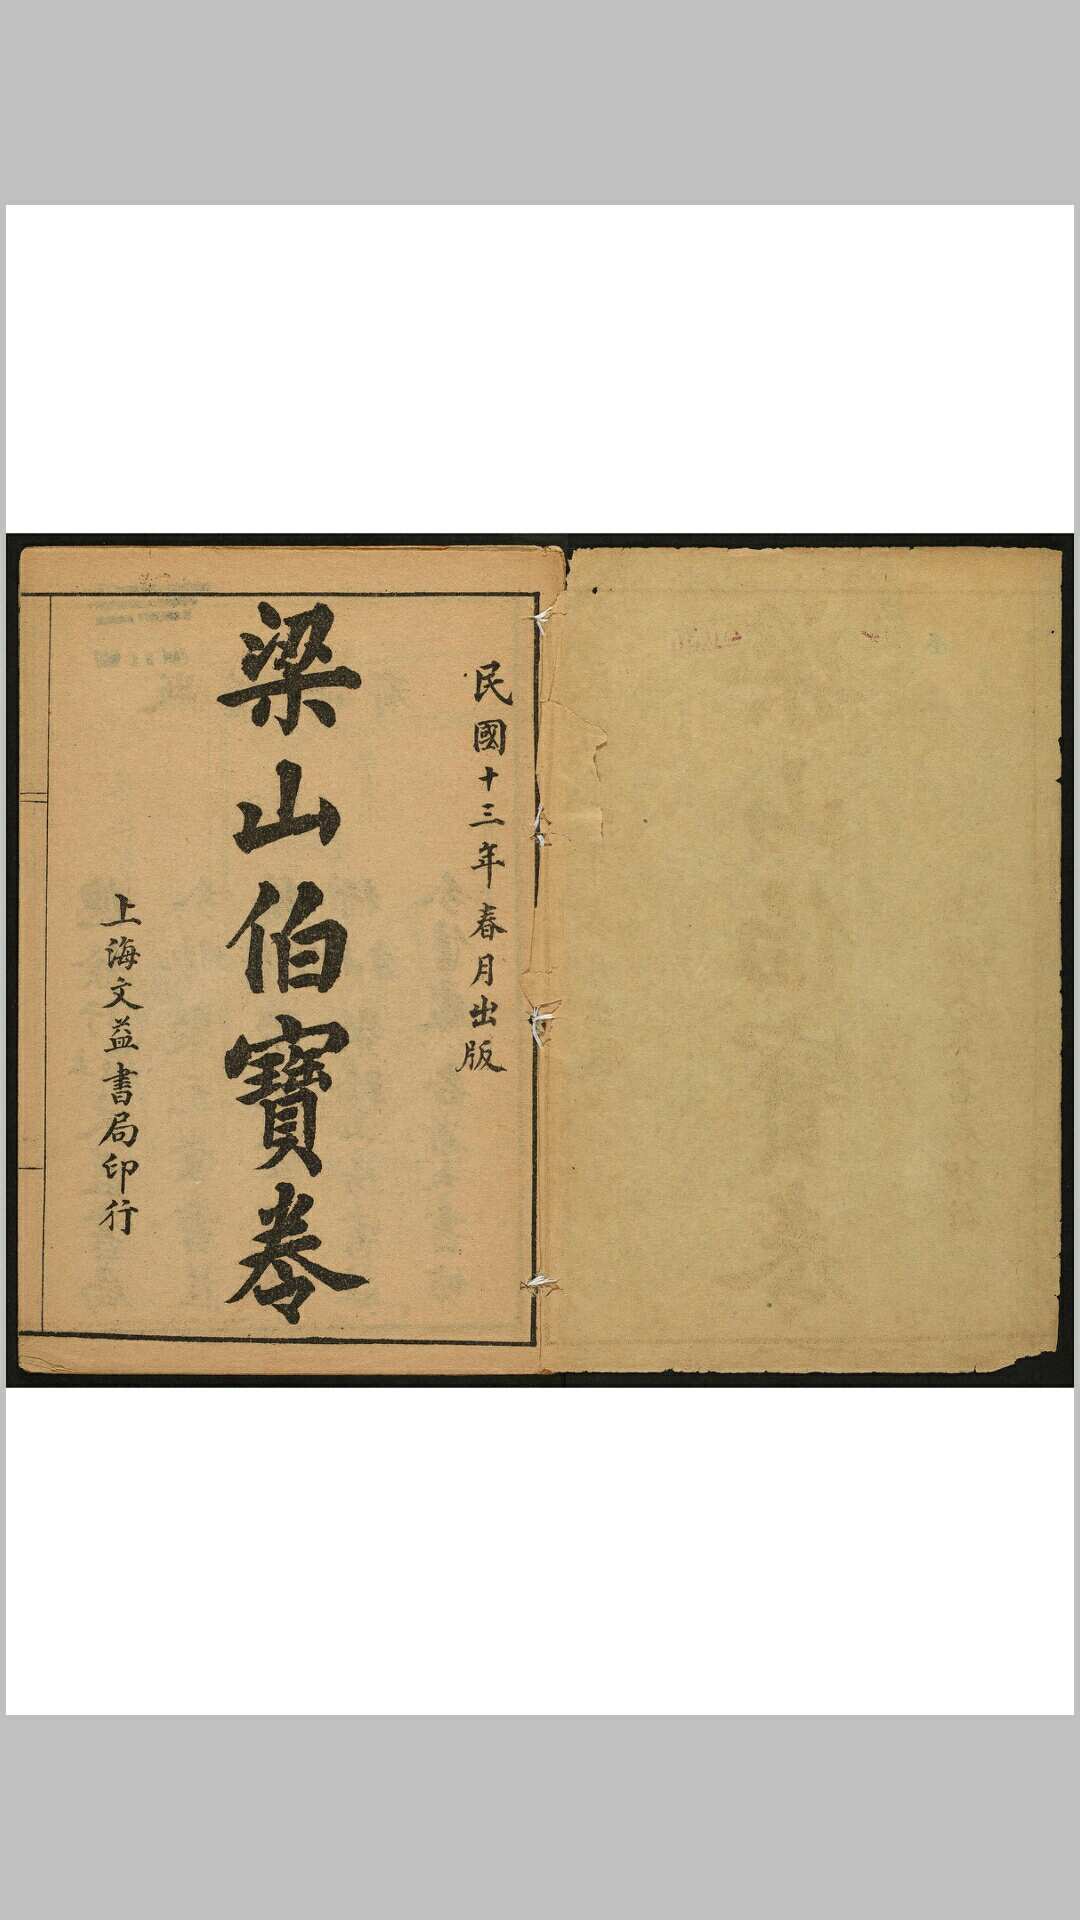 民國十三年春月出版
梁山伯寶卷
上海文益書局印行